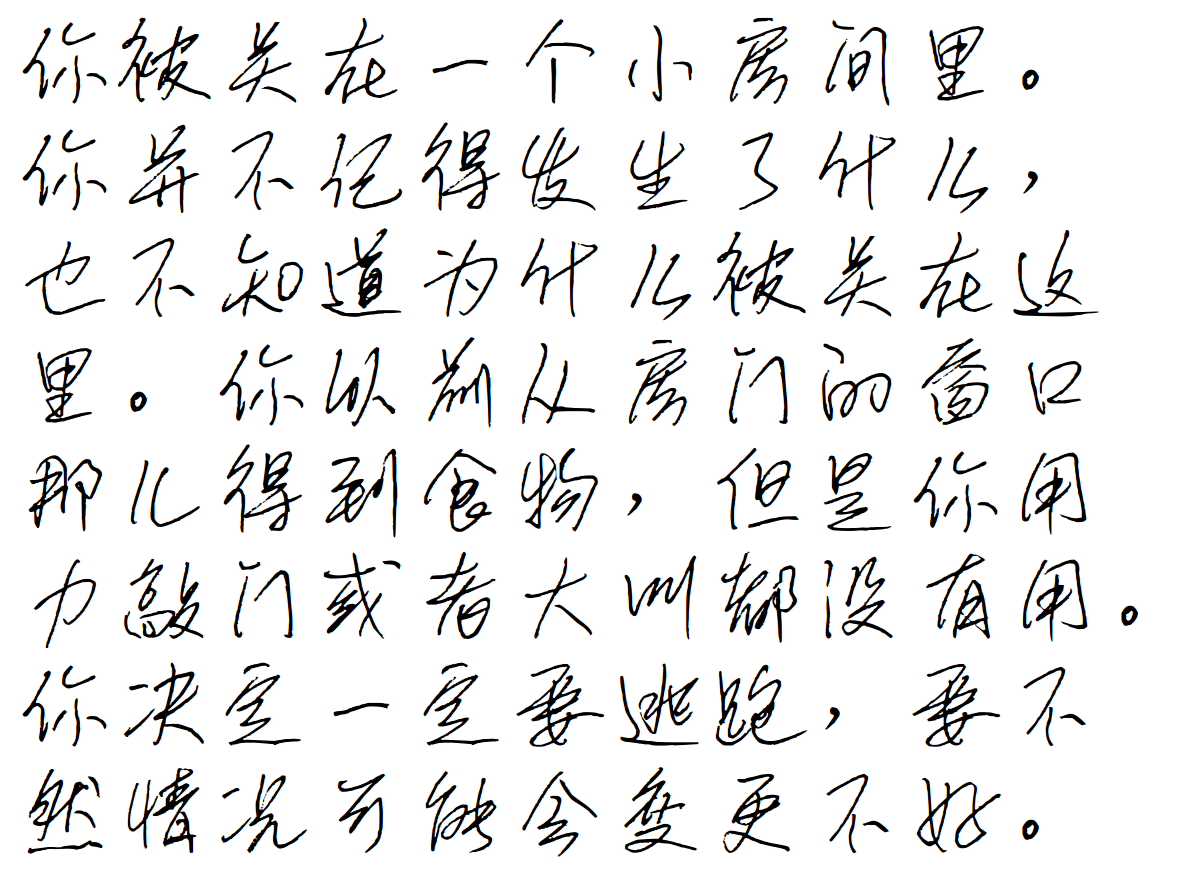 你被关在一个小房间里。
你并不记得发生了什么，
也不知道为什么被关在这
里。你以前从房门的窗口
那儿得到食物，但是你用
力敲门或者大叫都没有用。
你决定一定要逃跑，要不
然情况可能会变更不好。